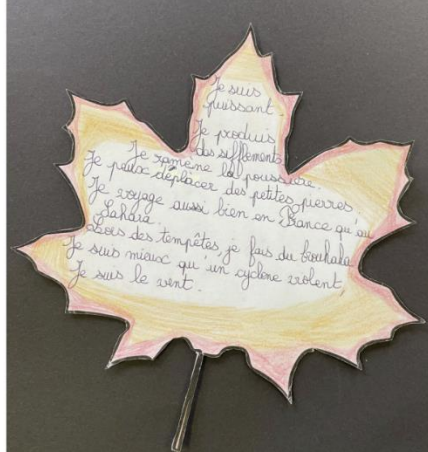 Je suis
puissant.
Je produis
des sifflements
Je ramène la poussière.
Je peux déplacer des petites pierres
Je voyage aussi bien en France qu'au
Sahara.
Lors des tempêtes, je fais du brouhaha
Je suis mieux qu'un cyclone violent,
Je suis le vent.